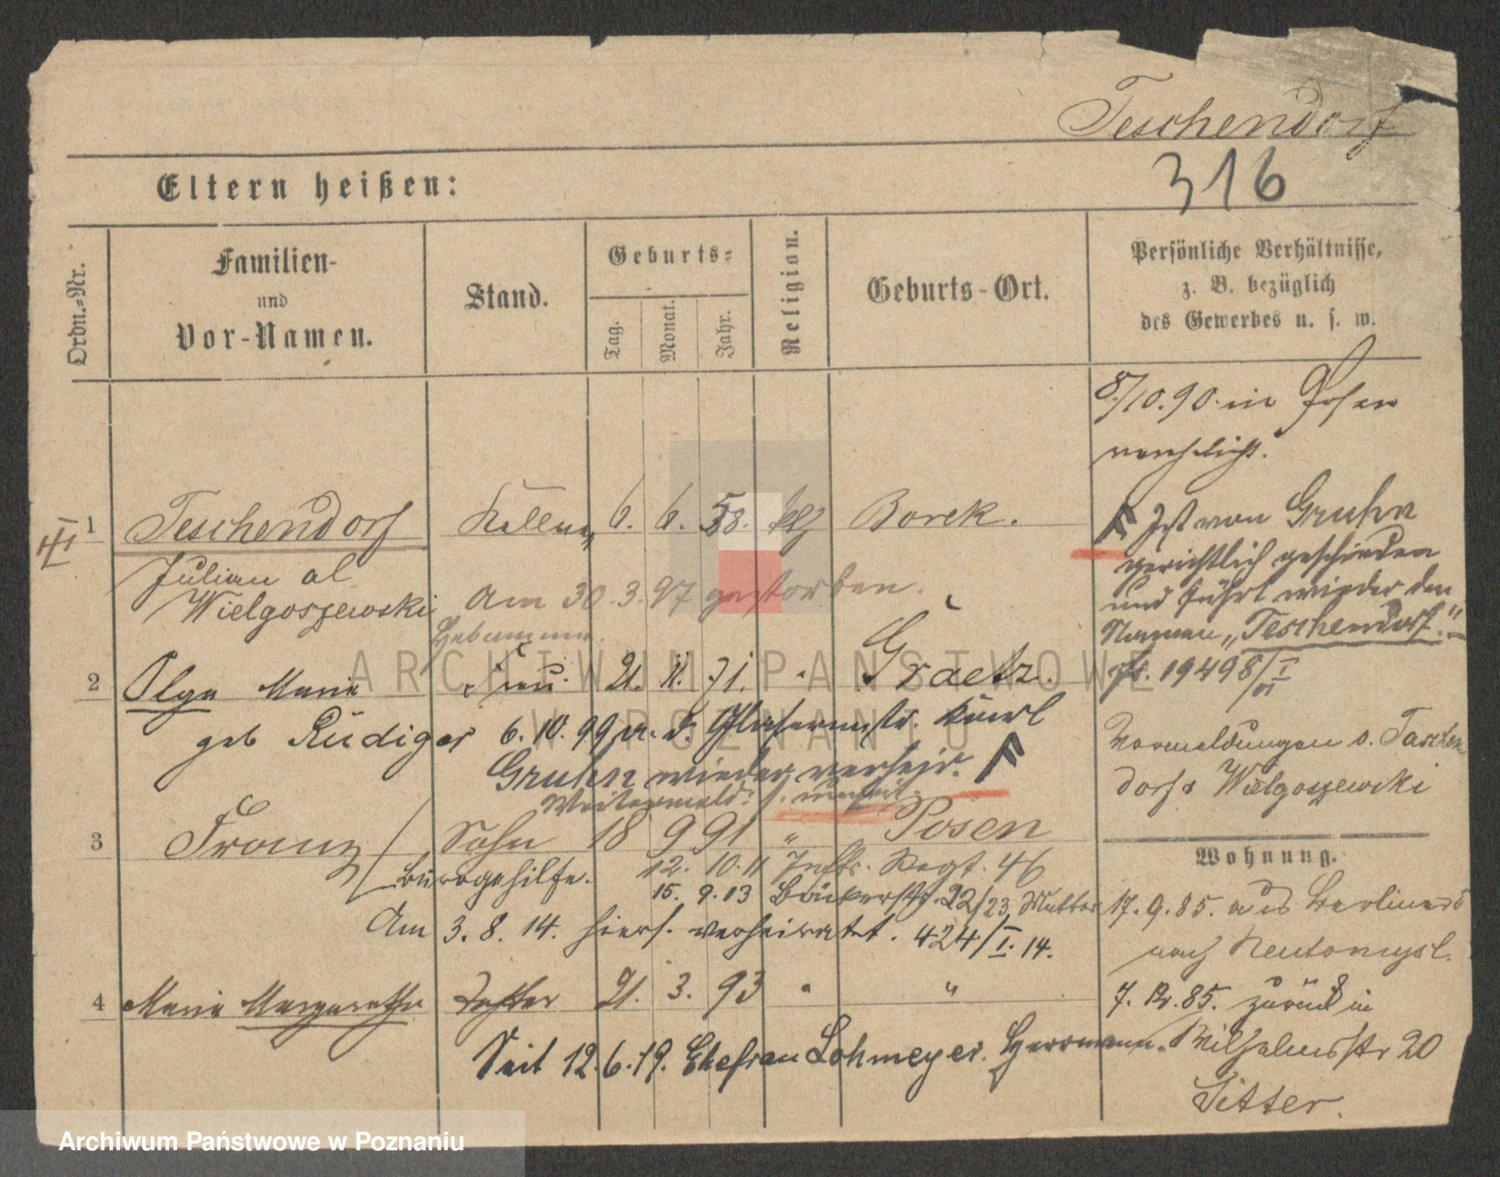 Teschendorf
316
Eltern heißen:
Ordn.-Nr.
Familien-
und
Vor-Namen.
Stand.
Geburts-
Tag.
Monat.
Jahr.
Religion.
Geburts-Ort.
Persönliche Verhältnisse,
z. B. bezüglich
des Gewerbes u. s. w.
8/10.90 in Posen
verehelicht.
III
1 Teschendorf Kellner 6. 6. 58. Borek.
Julian al
Wielgoszewski
Am 30.3.97 gestorben.
F Ist von Gruhn
gerichtlich geschieden
und führt wieder den
Namen "Teschendorf."
19498/I
2 Olga Marie Frau 21. 11. 71. " Graetz.
geb Rüdiger 6.10.99 Glasermstr. Karl
Gruhn wieder verheir. F
Vormeldungen s. Taschen
dorf & Wielgoszewski
3 Franz Sohn 18 9 91 " Posen
Bürogehilfe. 12. 10. 11 Inftr. Regt. 46
15. 9. 13 Bäckerstr. 22/23, Mutter
Am 3. 8. 14. hiers. verheiratet. 424/I. 14.
4 Marie Margarethe Tochter 21. 3. 93 " "
Seit 12.6.19. Ehefrau Lohmeyer. Herrmann.
Wohnung.
17. 9. 85. aus Berlinerst
nach Neutomysl.
7. 12. 85. zurück in
Wilhelmsstr 20
Ritter.
ARCHIWUM PAŃSTWOWE
W POZNANIU
Archiwum Państwowe w Poznaniu